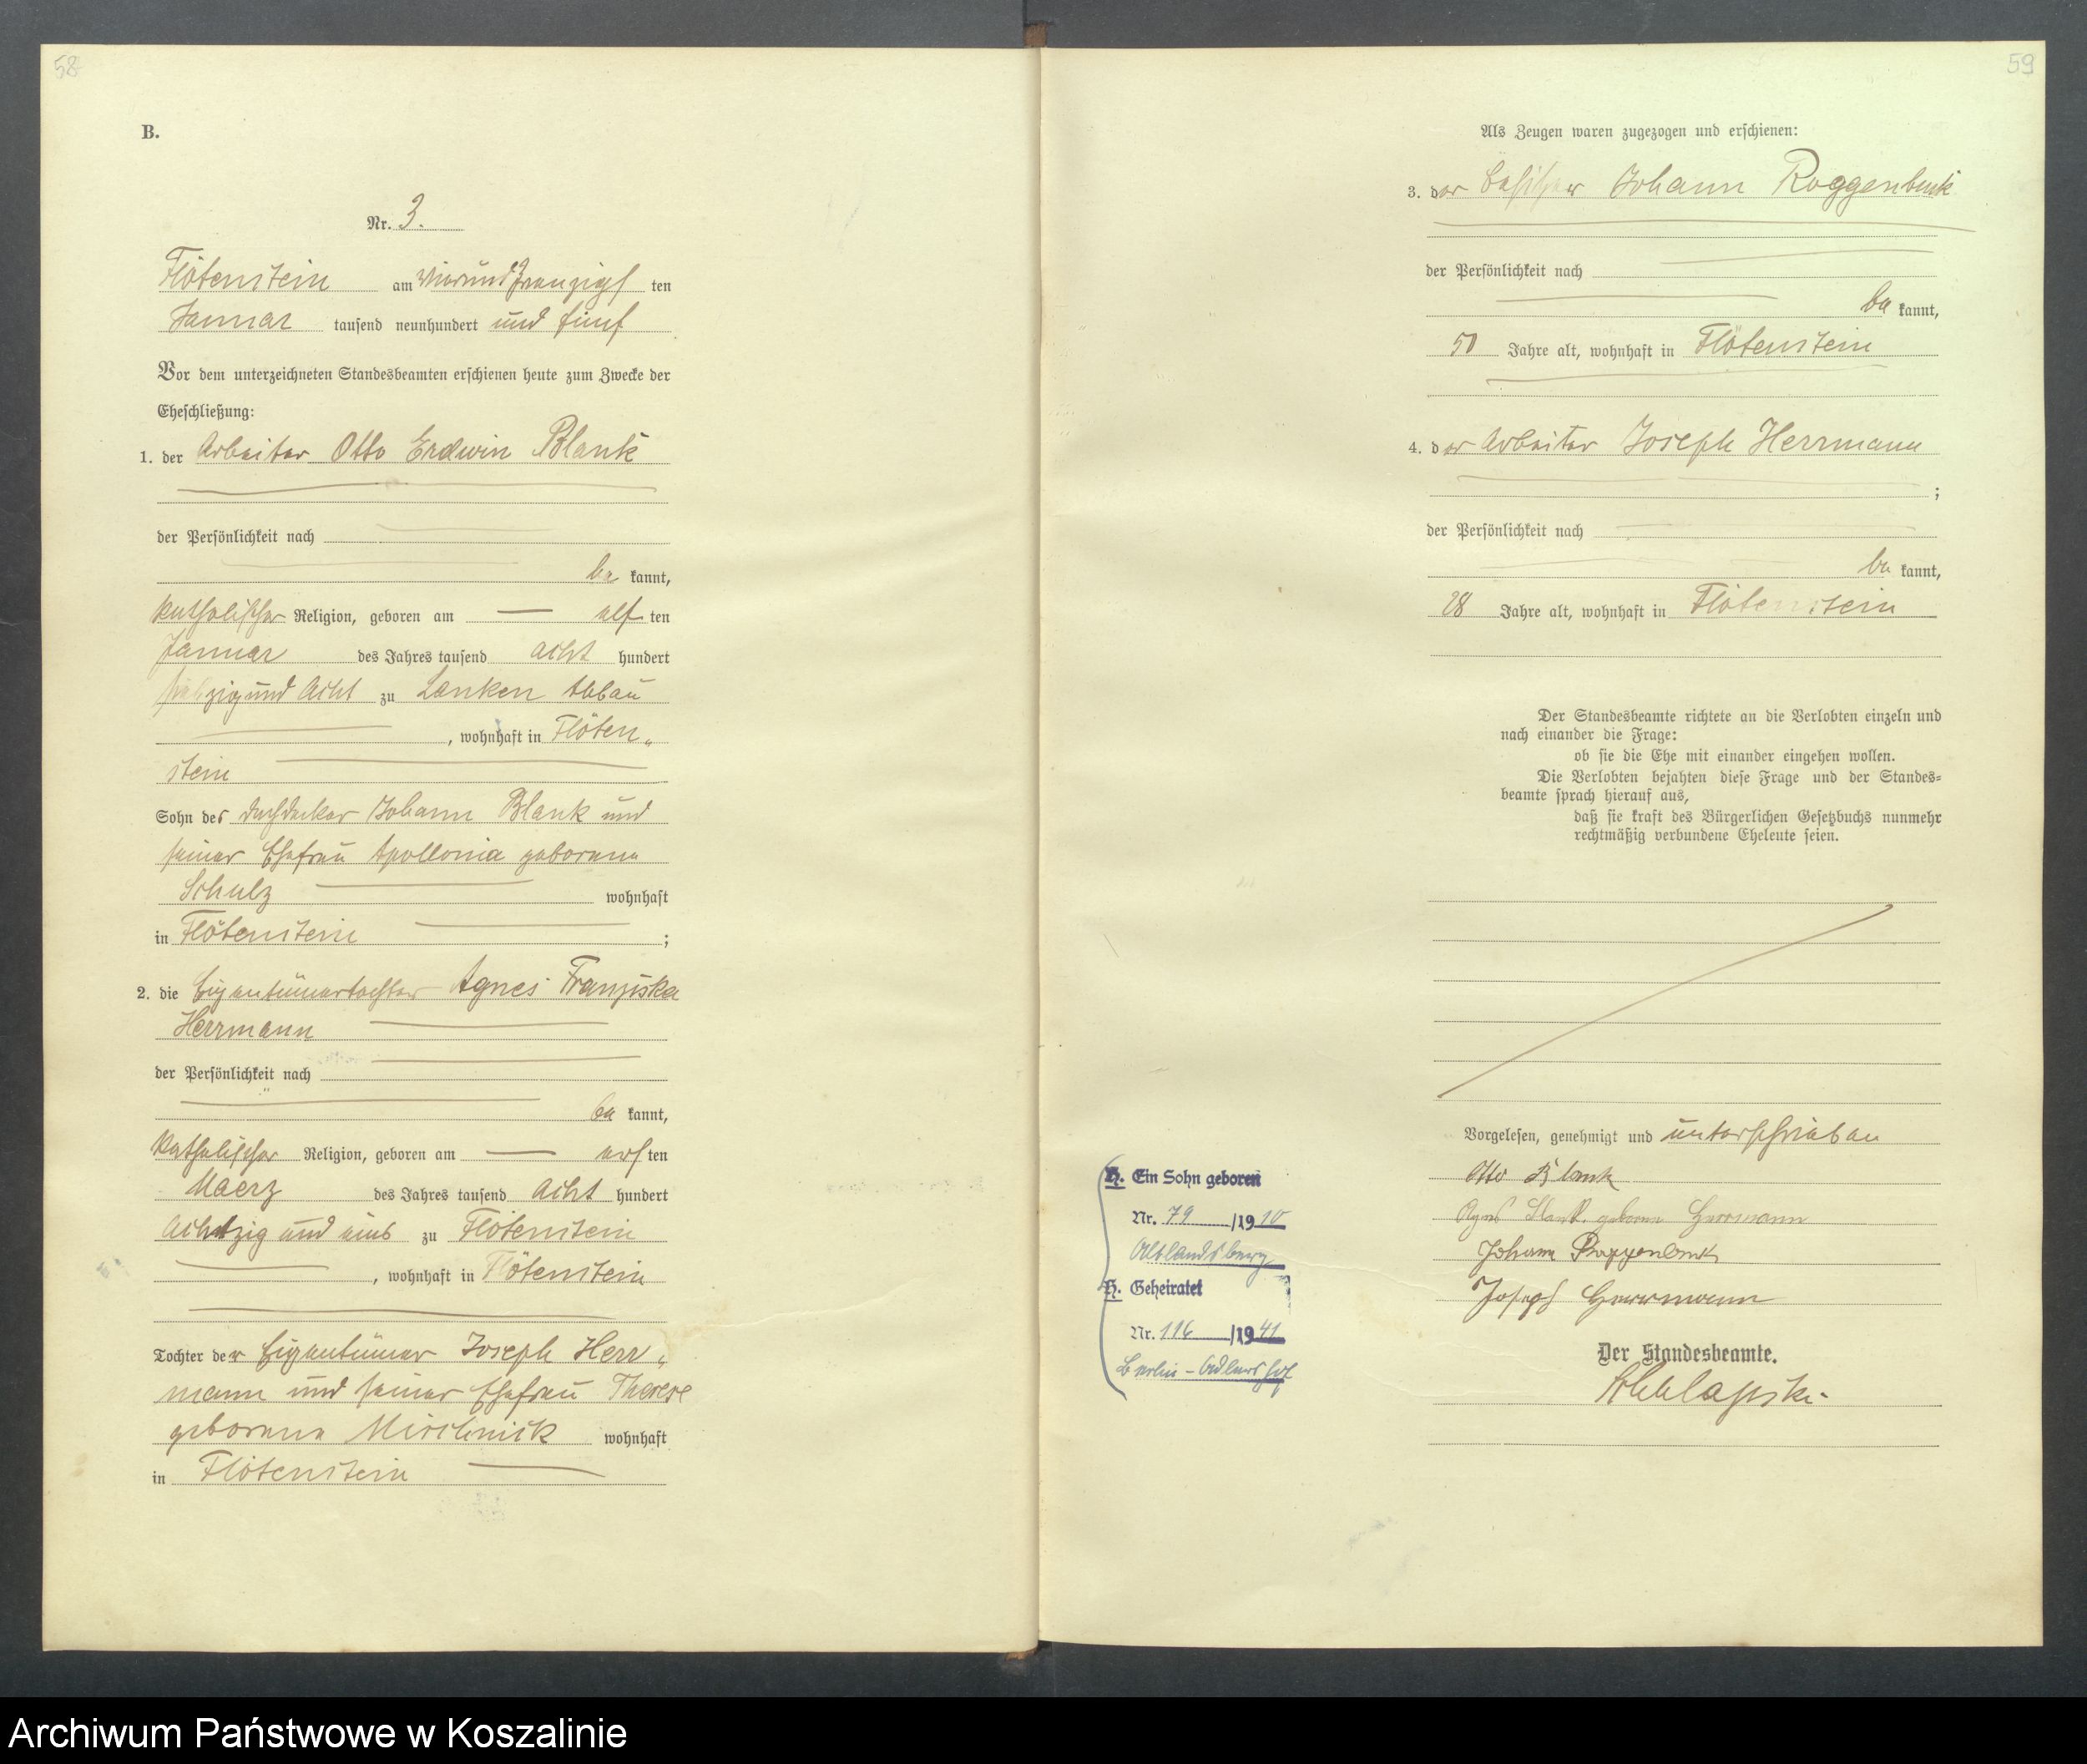 58
B.
Nr. 3.
Flötenstein am vierundzwanzigs ten
Januar tausend neunhundert und fünf
Vor dem unterzeichneten Standesbeamten erschienen heute zum Zwecke der
Eheschließung:
1. der Arbeiter Otto Erdwin Blank
der Persönlichkeit nach
be kannt,
katholischer Religion, geboren am — elf ten
Januar des Jahres tausend acht hundert
siebzig und acht zu Lanken Abbau
, wohnhaft in Flöten„
stein
Sohn des Dachdecker Johann Blank und
seiner Ehefrau Apollonia geborene
Schulz wohnhaft
in Flötenstein ;
2. die Eigentümertochter Agnes Franziska
Herrmann
der Persönlichkeit nach
be kannt,
katholischer Religion, geboren am — ers ten
Maerz des Jahres tausend acht hundert
achtzig und eins zu Flötenstein
, wohnhaft in Flötenstein
Tochter der Eigentümer Joseph Herr„
mann und seiner Ehefrau Therese
geborene Mischnick wohnhaft
in Flötenstein
59
Als Zeugen waren zugezogen und erschienen:
3. der Besitzer Johann Roggenbuck
der Persönlichkeit nach
be kannt,
50 Jahre alt, wohnhaft in Flötenstein
4. der Arbeiter Joseph Herrmann
;
der Persönlichkeit nach
be kannt,
28 Jahre alt, wohnhaft in Flötenstein
Der Standesbeamte richtete an die Verlobten einzeln und
nach einander die Frage:
ob sie die Ehe mit einander eingehen wollen.
Die Verlobten bejahten diese Frage und der Standes-
beamte sprach hierauf aus,
daß sie kraft des Bürgerlichen Gesetzbuchs nunmehr
rechtmäßig verbundene Eheleute seien.
Vorgelesen, genehmigt und unterschrieben
Otto Blank
Agnes Blank geborene Herrmann
Johann Roggenbuck
Joseph Herrmann
Der Standesbeamte.
H. Ein Sohn geboren
Nr. 79 /1910
Altlandsberg
H. Geheiratet
Nr. 116 /1941
Berlin-Adlershof
Archiwum Państwowe w Koszalinie